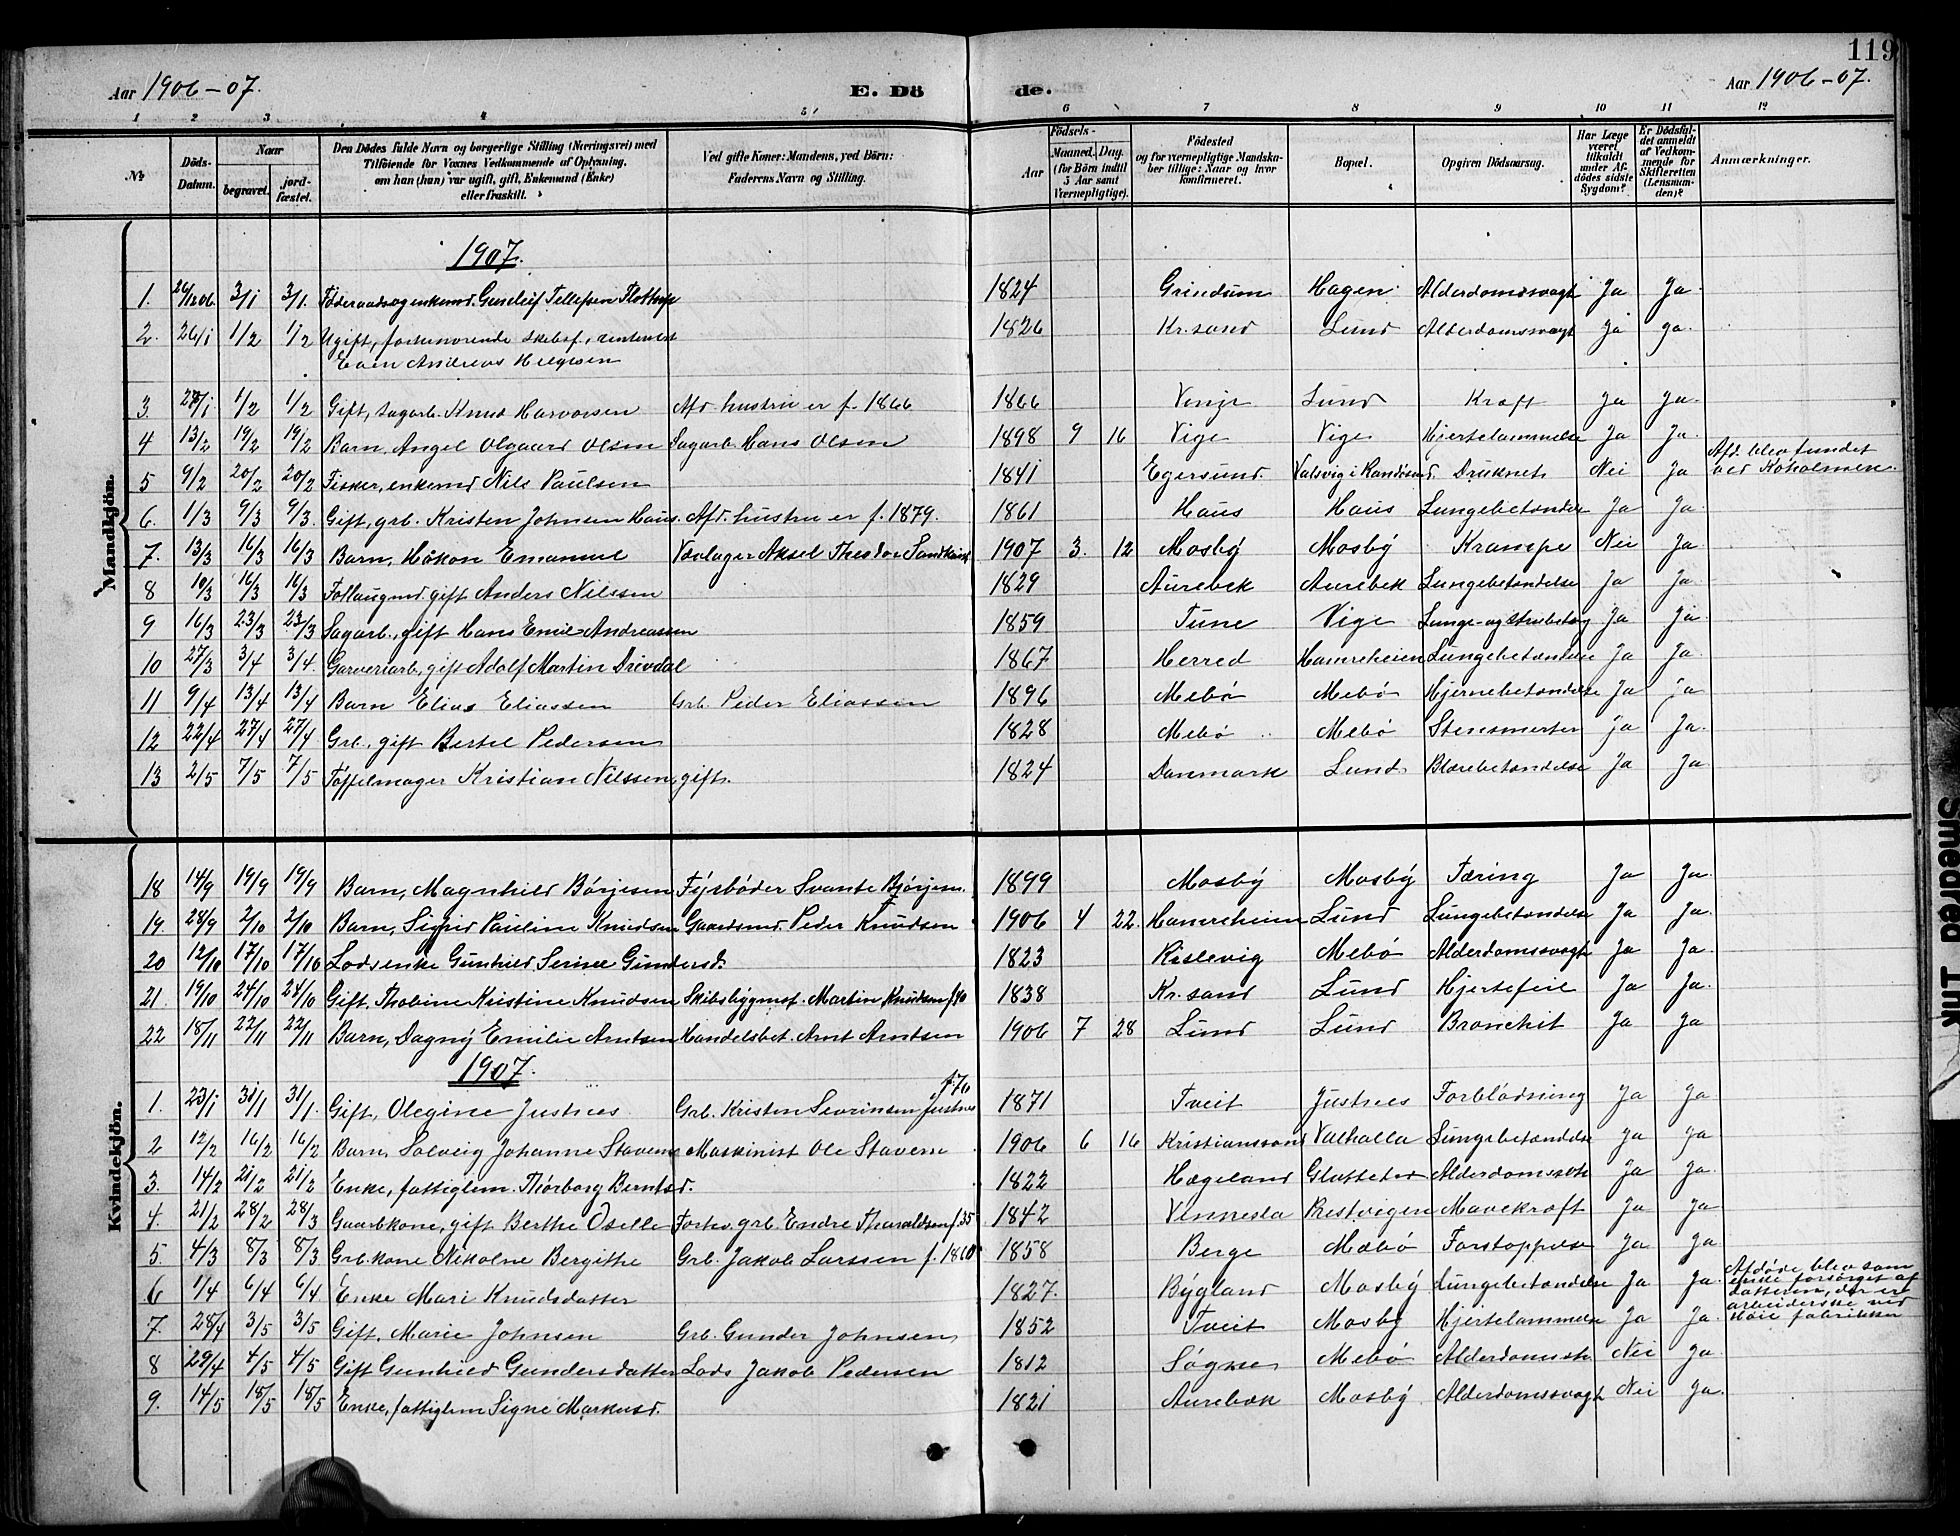 119
Aar 1906-07. E. Dö de. Aar 1906-07.
1 2 3 4 5 6 7 8 9 10 11 12
No
Döds-Datum.
Naar
begravet.
jord-fæstet.
Den Dödes fulde Navn og borgerlige Stilling (Næringsvei) med
Tilföiende for Voxnes Vedkommende af Oplysning,
om han (hun) var ugift, gift, Enkemand (Enke)
eller fraskilt.
Ved gifte Koner: Mandens, ved Börn:
Faderens Navn og Stilling.
Födsels-
Aar
Maaned. Dag.
(for Börn indtil
5 Aar samt
Værnepligtige).
Födested
og for værnepligtige Mandska-
ber tillige: Naar og hvor
konfirmeret.
Bopæl.
Opgiven Dödsaarsag.
Har Læge
været
tilkaldt
under Af-
dödes sidste
Sygdom?
Er Dödsfal-
det anmeldt
af Vedkom-
mende for
Skifteretten
(Lensman-
den)?
Anmærkninger.
Mandkjön.
1907.
1. 26/12 06. 3/1 3/1. Föderaadsog enkemd. Gundleif Tellefsen Flottorp 1824 Grindum Hagen Alderdomssvagh Ja Ja.
2. 26/1 1/2 1/2 Ugift, forhenværende skibsf., rentenist 1826 Kr.sand Lund Alderdomssvagh Ja Ja.
Even Andreas Helgesen
3. 27/1 1/2 1/2 Gift, sagarb. Knud Harvorsen Afd. hustru er f. 1866 1866 Vinje Lund Kræft Ja Ja.
4 13/2 19/2 19/2 Barn, Angel Olgaard Olsen Sagarb. Hans Olsen 1898 9 16 Vige Vige Hjertelammelse Ja Ja.
5 9/2 20/2 20/2 Fisker, enkemd Nils Paulsen 1841 Egersund. Valsvig i Randösund. Druknet Nei Ja Afd. blev fundet
ved Koholmen.
6. 1/3 9/3 9/3. Gift, grb. Kristen Johnsen Haus. Afd. hustru er f. 1879. 1861 Haus Haus Lungebetændelse Ja Ja.
7. 13/3 16/3 16/3 Barn, Håkon Emanuel Vævlager Aksel Theodor Sandkvist 1907 3. 12 Mosbÿ Mosbÿ Krampe Nei Ja
8 10/3 16/3 16/3 Følaugmd. gift Anders Nilssen 1829 Aurebek Aurebek Lungebetændelse Ja Ja.
9 16/3 23/3 23/3 Sagarb., gift Hans Emil Andreassen 1859 Tune Vige Lunge- og Strubebetæg Ja Ja.
10 27/3 3/4 3/4. Garveriarb. gift Adolf Martin Drivdal 1867 Herred Hamreheien Lungebetændelse Ja Ja
11 9/4 13/4 13/4 Barn Elias Eliassen Grb. Peder Eliassen 1896 Mebø Mebø Hjernebetændelse Ja ja
12 22/4 27/4 27/4 Grb., gift Bertel Pedersen 1828 Mebø Mebø Stensmerter Ja Ja.
13 2/5 7/5 7/5 Töffelmager Kristian Nilssen, gift. 1824 Danmark Lund. Blærebetændelse Ja Ja.
Kvindekjön.
18 14/9 19/9 19/9 Barn, Magnhild Börjesen Fÿrböder Svante Bjørjesn. 1899 Mosbÿ Mosbÿ Tæring Ja Ja.
19 28/9 2/10 2/10 Barn, Sigrid Pauline Knudsen Gaardsmd. Peder Knudsen 1906 4 22. Hamreheien Lund Lungebetændelse Ja Ja.
20 12/10 17/10 17/10 Lodsenke Gunhild Serine Gundersd. 1823 Rislevig Mebø Alderdomssvagh Ja Ja.
21 19/10 24/10 24/10 Gift, Thobine Kristine Knudsen Skibsbÿgmst. Martin Knudsen f. 40 1838 Kr.sand Lund Hjertefeil Ja Ja.
22 18/11 22/11 22/11 Barn, Dagnÿ Emilie Arntsen Handelsbet. Arnt Arntsen 1906 7 28 Lund Lund Bronchit Ja Ja
1907.
1. 23/1 31/1 31/1. Gift, Olegine Justnes Grb. Kristen Sevrinsen Justnes f. 70 1871 Tveit Justnes Forblödning Ja Ja
2 12/2 16/2 16/2 Barn, Solveig Johanne Stavens Maskinist Ole Staverns 1906 6 16 Kristianssand Valhalla Lungebetændelse Ja Ja
3. 14/2 21/2 21/2 Enke, fattiglem. Thörborg Berntsd. 1822 Hægeland Glattetre Alderdomssvk Ja Ja.
4. 21/2 28/2 28/3 Gaarbkone, gift Berthe Oselle Forhv. grb. Endre Tharaldsen f. 35 1842 Vennesla Prestvigen Mavekræft Ja Ja
5 4/3 8/3 8/3 Grb.kone Nikolne Bergithe Grb. Jakob Larssen f. 1860 1858 Berge Mebø Forstoppelse Ja Ja
6 1/4 6/4 6/4 Enke Mari Knudsdatter 1827. Bÿgland Mosbÿ Lungebetændelse Ja Ja. Afdøde blev som
enke forsørget af
datteren, der er
arbeiderske ved
Høie fabrikker
7. 28/4 3/5 3/5 Gift, Marie Johnsen Grb. Gunder Johnsen 1852 Tveit Mosbÿ Hjertelammelse Ja Ja.
8 29/4 4/5 4/5 Gift Gunhild Gundersdatter Lods Jakob Pedersen 1812 Søgne Mebø Alderdomssk Nei Ja.
9. 14/5 18/5 18/5 Enke, fattiglem Signe Markusd. 1821 Aurebæk Mosbÿ Alderdomssvagh Nei Ja.
Smedfred Ink